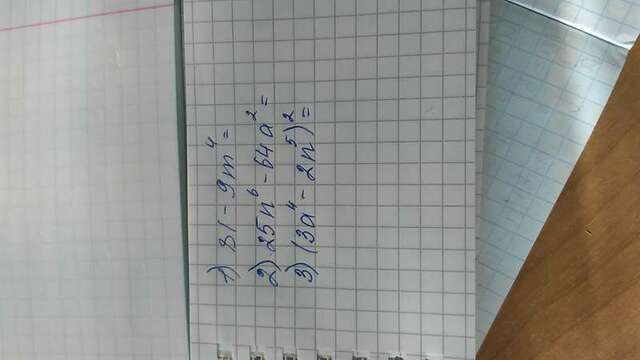 1) 81 - 9m⁴ =
2) 25n⁶ - 64a² =
3) (3a⁴ - 2n⁵)² =